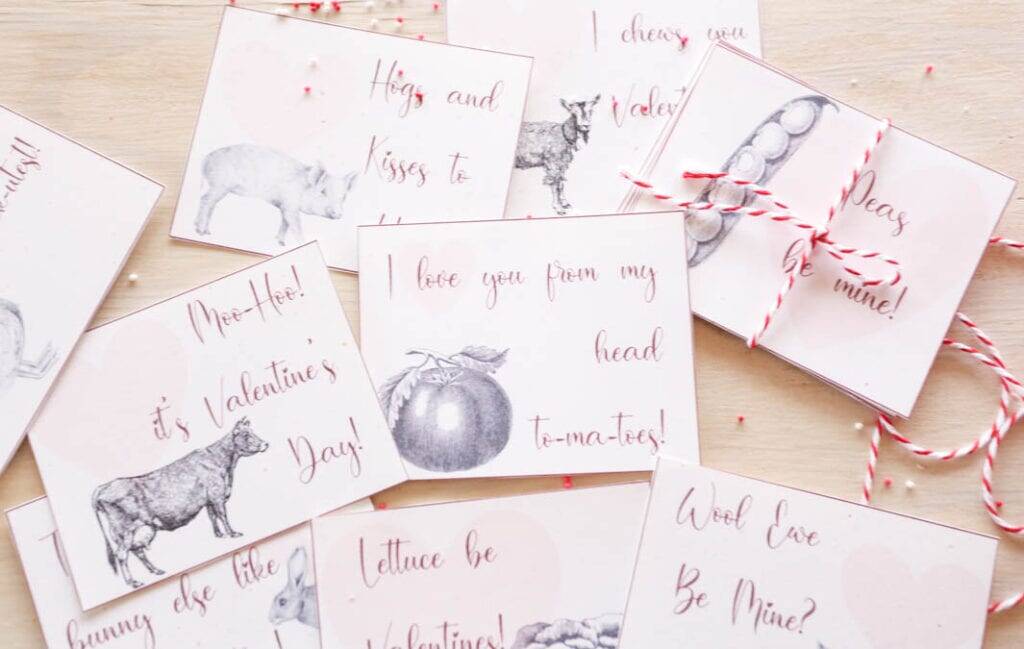 Hogs and
Kisses to
I chews you
Peas
be
mine!
I love you from my
head
to-ma-toes!
Moo-Hoo!
it's Valentine's
Day!
bunny else like
Lettuce be
Valentines!
Wool Ewe
Be Mine?